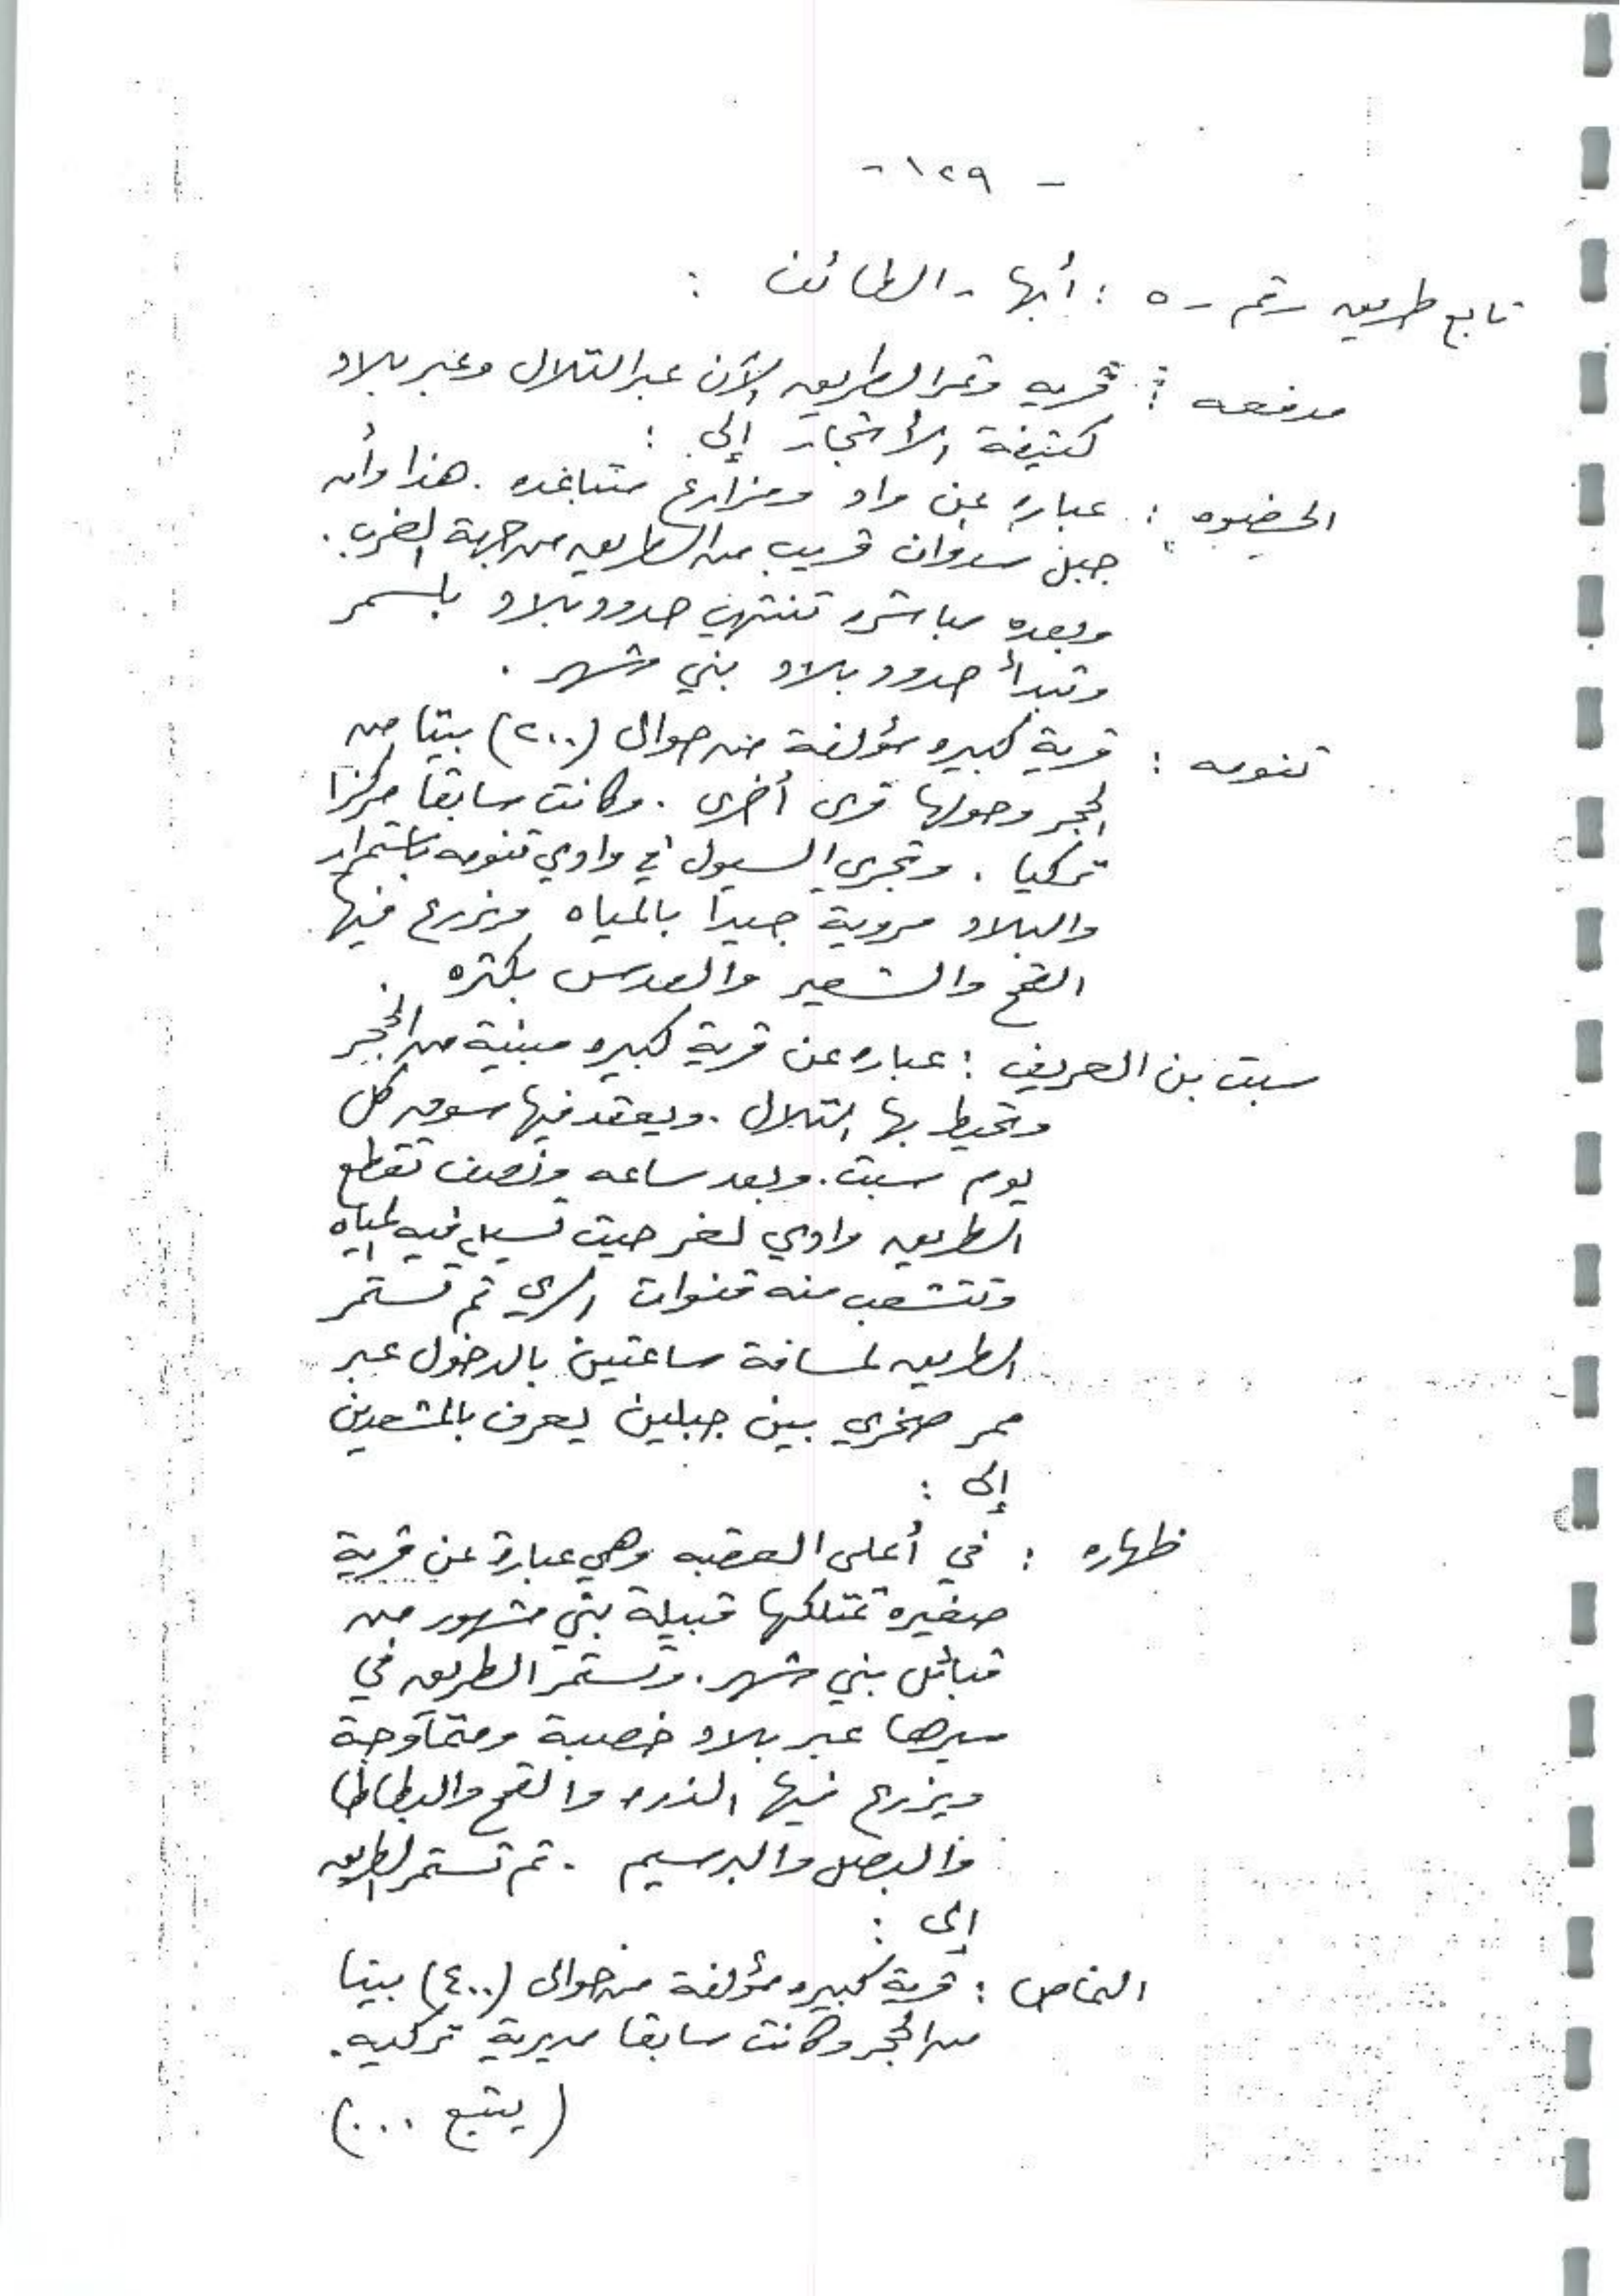 - ١٢٩ -
تابع طريق رقم - ٥ : أبها - الطائف :
مدفعه : قريه وتمر الطريق الآن عبر التلال وعبر بلاد
كثيفة الأشجار إلى :
عباره عن واد ومزارع متباعده . هذا وأن
جبل سدوان قريب من الطريق من جهة الغرب .
وبعده مباشره تنتهي حدود بلاد بلسمر
وتبدأ حدود بلاد بني شهر .
تنومه : قرية كبيره مؤلفة من حوالى (٢٠٠) بيتا من
الحجر وحولها قرى أخرى . وكانت سابقا مركزا
تركيا . وتجري السيول في وادي تنومه باستمرار
والبلاد مروية جيدا بالمياه ويزرع فيها
القمح والشعير والعدس بكثره .
سبت بن العريف : عباره عن قرية كبيره مبنية من الحجر
وتحيط بها التلال . ويعقد فيها سوق كل
يوم سبت . وبعد ساعه ونصف تقطع
الطريق وادي لغر حيث تسيل فيه المياه
وتتشعب منه قنوات الري ثم تستمر
الطريق لمسافة ساعتين بالدخول عبر
ممر صخري بين جبلين يعرف بالمشعدين
إلى :
ظهاره : في أعلى العقبه وهي عبارة عن قرية
صغيره تمتلكها قبيلة بني مشهور من
قبائل بني شهر . وتستمر الطريق في
سيرها عبر بلاد خصبة ومتماوجة
ويزرع فيها الذره والقمح والبطاطا
والبصل والبرسيم . ثم تستمر الطريق
إلى :
النماص : قرية كبيره مؤلفة من حوالى (٤٠٠) بيتا
من الحجر وكانت سابقا مديرية تركيه .
(يتبع ...)